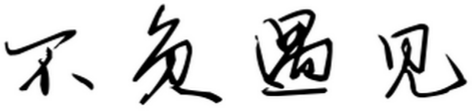 不负遇见